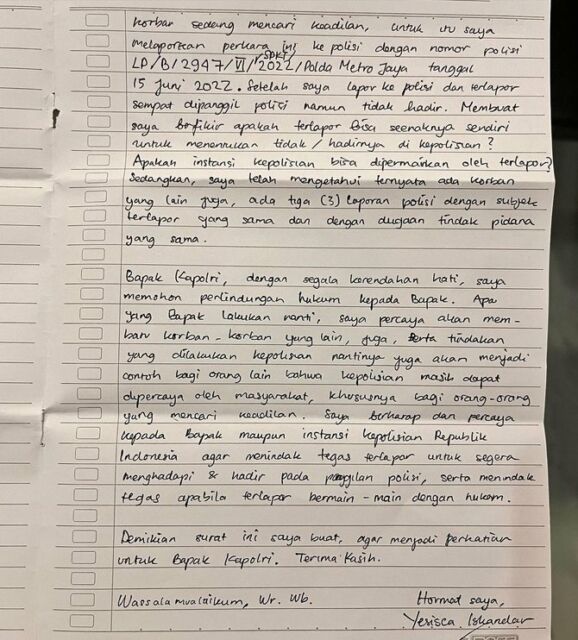 korban sedang mencari keadilan, untuk itu saya
melaporkan perkara ini ke polisi dengan nomor polisi
LP/B/2947/VI/2022/SPKT/Polda Metro Jaya tanggal
15 Juni 2022. Setelah saya lapor ke polisi dan terlapor
sempat dipanggil polisi namun tidak hadir. Membuat
saya berfikir apakah terlapor bisa seenaknya sendiri
untuk menentukan tidak / hadirnya di kepolisian?
Apakah instansi kepolisian bisa dipermainkan oleh terlapor?
Sedangkan, saya telah mengetahui ternyata ada korban
yang lain juga, ada tiga (3) laporan polisi dengan subjek
terlapor yang sama dan dengan dugaan tindak pidana
yang sama.
Bapak Kapolri, dengan segala kerendahan hati, saya
memohon perlindungan hukum kepada Bapak. Apa
yang Bapak lakukan nanti, saya percaya akan mem-
batu korban-korban yang lain, juga, serta tindakan
yang dilakukan kepolisian nantinya juga akan menjadi
contoh bagi orang lain bahwa kepolisian masih dapat
dipercaya oleh masyarakat, khususnya bagi orang-orang
yang mencari keadilan. Saya berharap dan percaya
kepada Bapak maupun instansi kepolisian Republik
Indonesia agar menindak tegas terlapor untuk segera
menghadapi & hadir pada panggilan polisi, serta menindak
tegas apabila terlapor bermain-main dengan hukum.
Demikian surat ini saya buat, agar menjadi perhatian
untuk Bapak Kapolri. Terima Kasih.
Wassalamualaikum, Wr. Wb.
Hormat saya,
Yerisca Iskandar